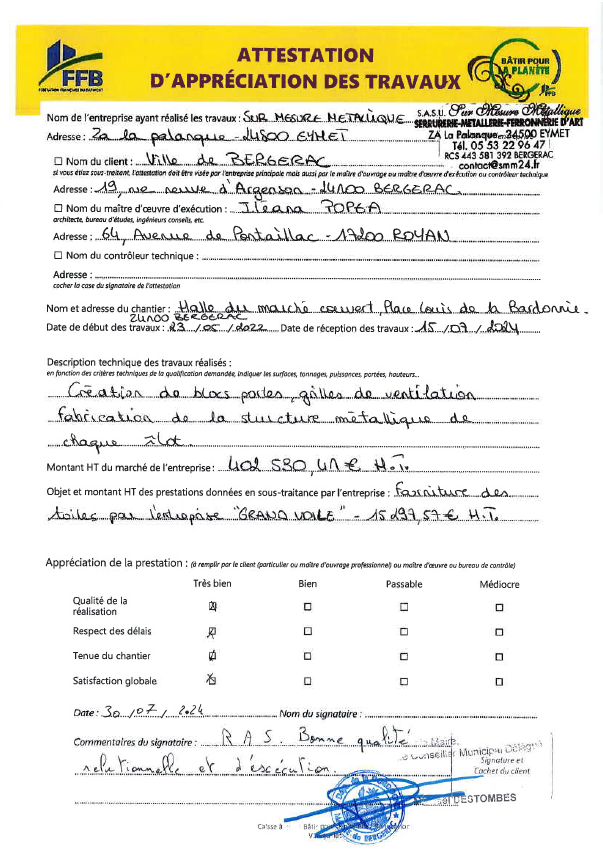 FFB
FEDERATION FRANÇAISE DU BATIMENT
ATTESTATION
D'APPRÉCIATION DES TRAVAUX
BÂTIR POUR
LA PLANÈTE
FFB
Nom de l'entreprise ayant réalisé les travaux : SUR MESURE METALLIQUE
S.A.S.U. Sur Mesure Métallique
SERRURERIE-METALLERIE-FERRONNERIE D'ART
ZA La Palanque - 24500 EYMET
Tél. 05 53 22 96 47
RCS 443 581 392 BERGERAC
contact@smm24.fr
Adresse : Za la palanque - 24500 EYMET
☐ Nom du client : Ville de BERGERAC
si vous étiez sous-traitant, l'attestation doit être visée par l'entreprise principale mais aussi par le maître d'ouvrage ou maître d'œuvre d'exécution ou contrôleur technique
Adresse : 19, rue neuve d'Argenson - 24100 BERGERAC
☐ Nom du maître d'œuvre d'exécution : Ileana POPEA
architecte, bureau d'études, ingénieurs conseils, etc.
Adresse : 64, Avenue de Pontaillac - 17200 ROYAN
☐ Nom du contrôleur technique :
Adresse :
cocher la case du signataire de l'attestation
Nom et adresse du chantier : Halle du marché couvert, Place Louis de la Bardonnie
24100 BERGERAC
Date de début des travaux : 23 / 05 / 2022 Date de réception des travaux : 15 / 07 / 2024
Description technique des travaux réalisés :
en fonction des critères techniques de la qualification demandée, indiquer les surfaces, tonnages, puissances, portées, hauteurs...
Création de blocs portes, grilles de ventilation
fabrication de la structure métallique de
chaque îlot
Montant HT du marché de l'entreprise : 402 530,41 € H.T.
Objet et montant HT des prestations données en sous-traitance par l'entreprise : Fourniture des
toiles par l'entreprise "GRAND VOILE" - 15 297,57 € H.T.
Appréciation de la prestation : (à remplir par le client (particulier ou maître d'ouvrage professionnel) ou maître d'œuvre ou bureau de contrôle)
Très bien Bien Passable Médiocre
Qualité de la
réalisation
Respect des délais
Tenue du chantier
Satisfaction globale
Date : 30 / 07 / 2024 Nom du signataire :
Commentaires du signataire : RAS. Bonne qualité
Maire,
Conseiller Municipal Délégué
relationnelle et d'exécution.
Signature et
Cachet du client
DESTOMBES